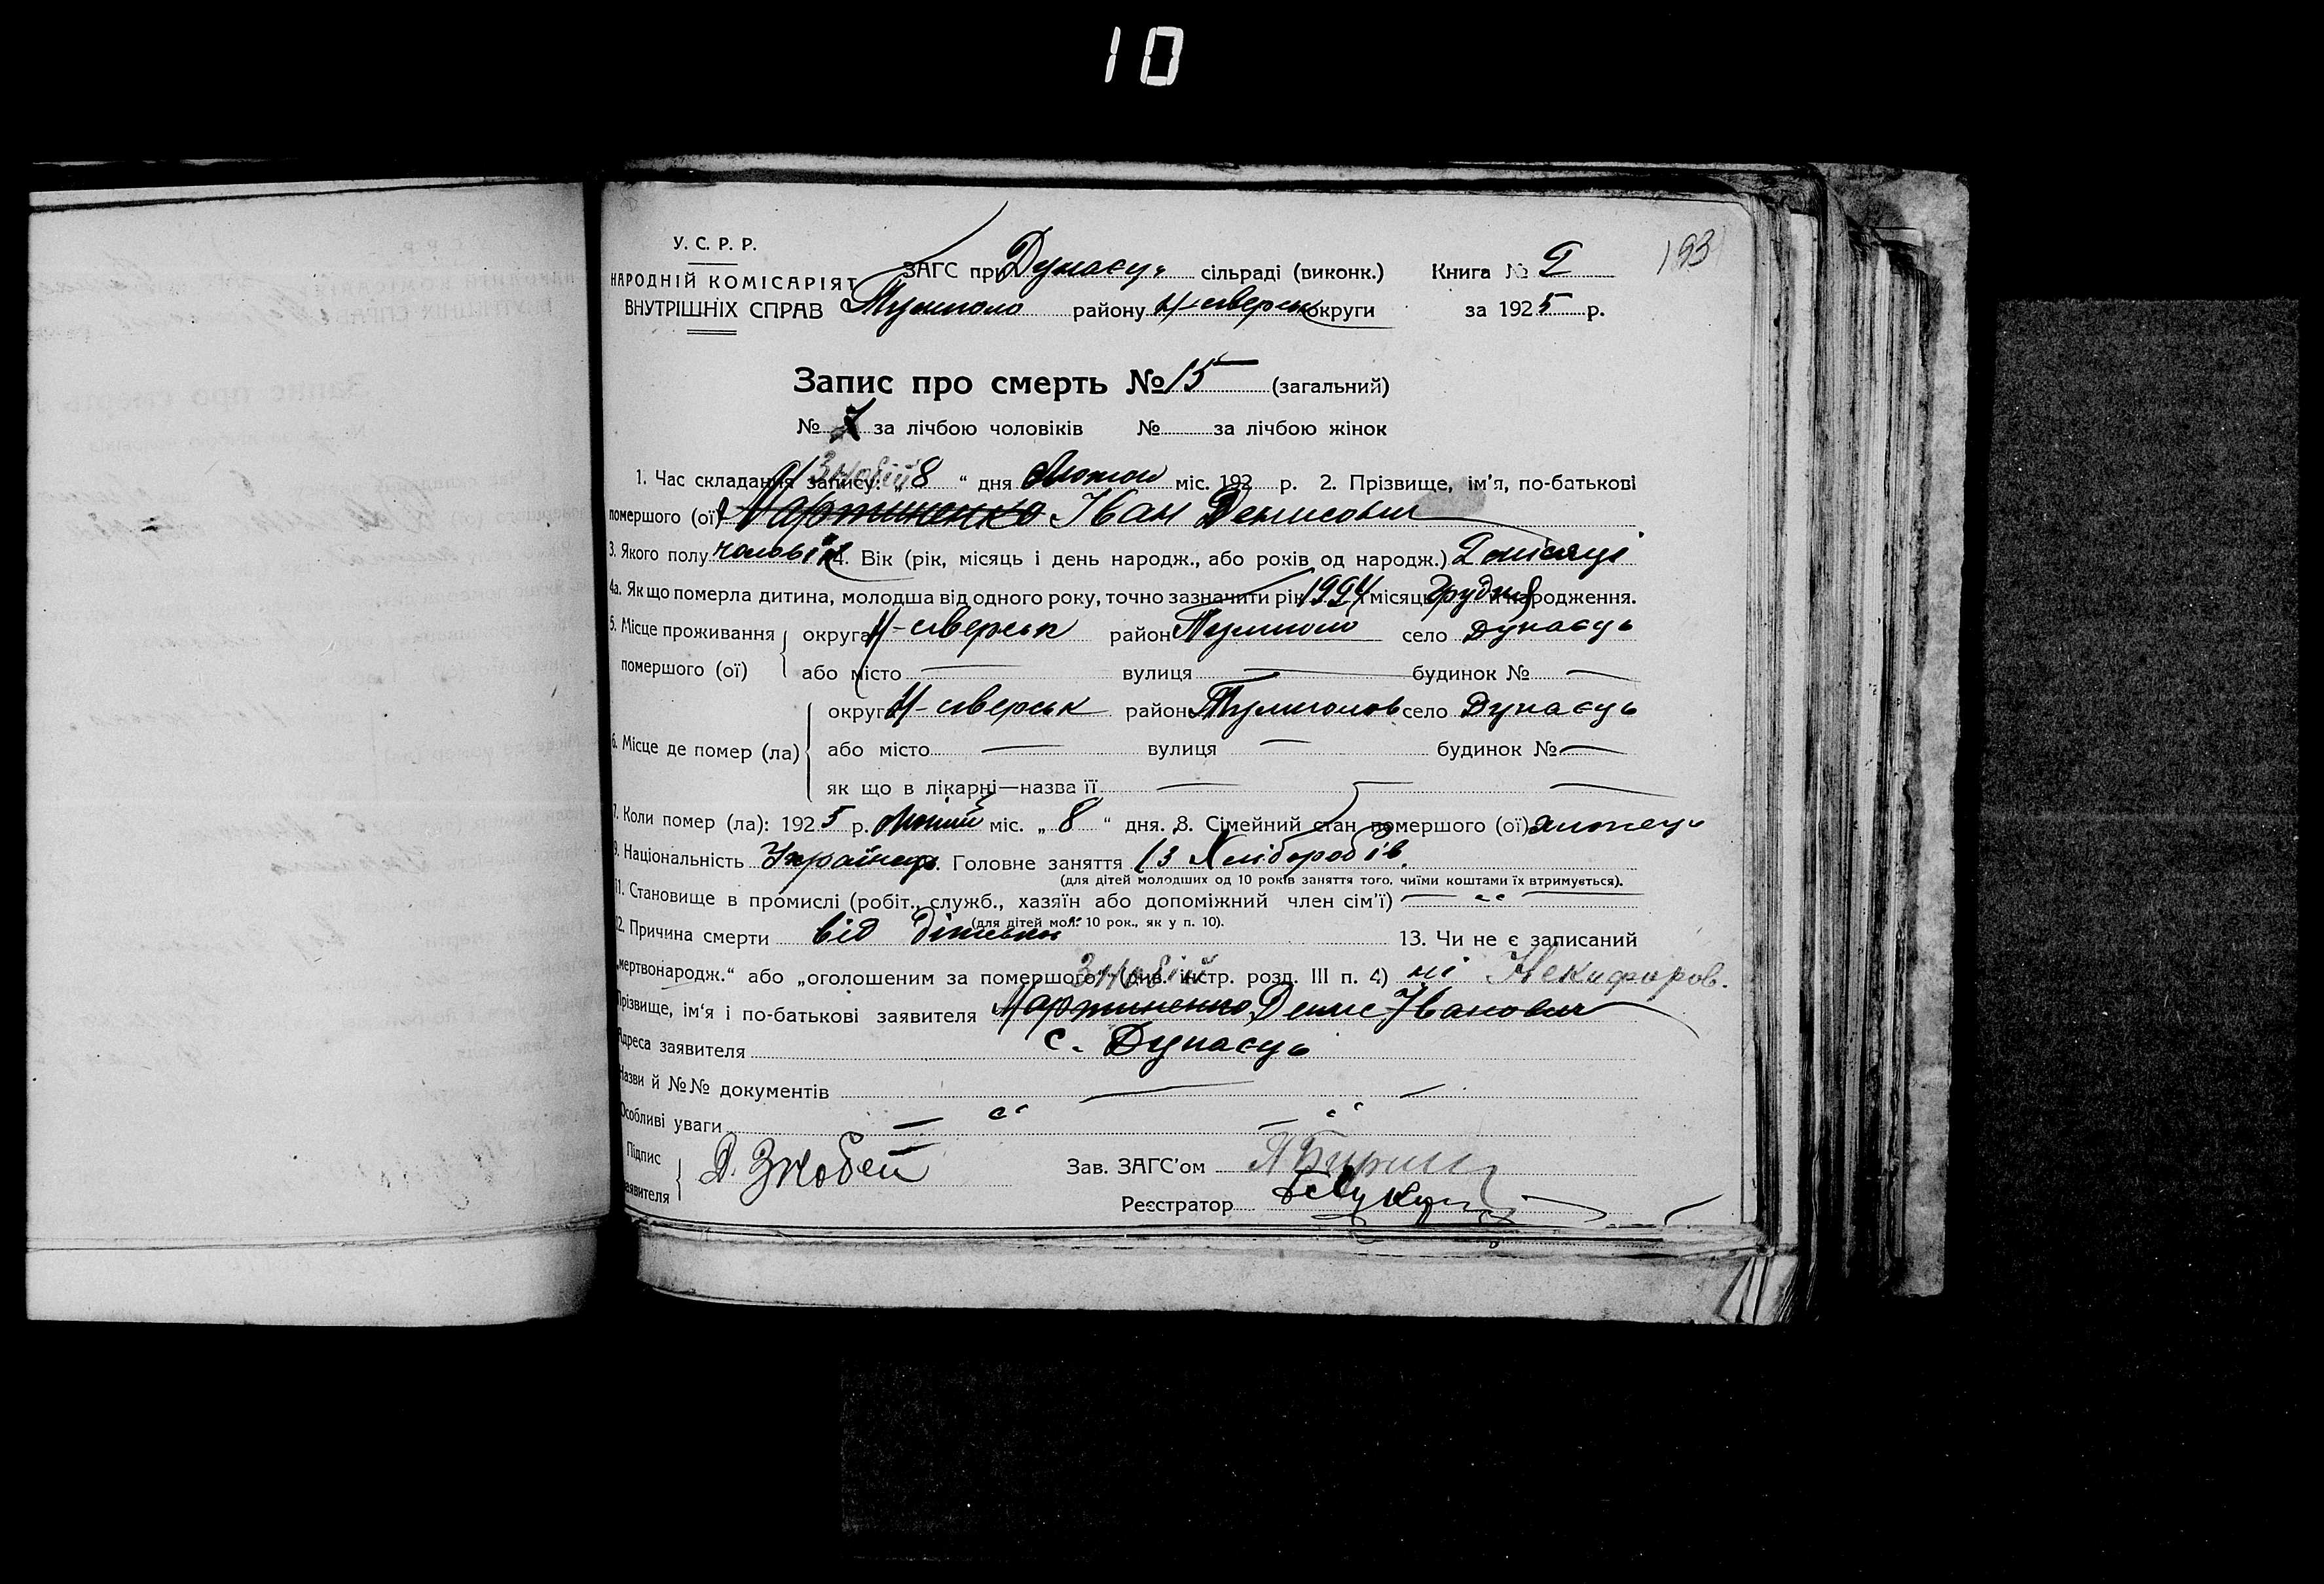 10
193
У. С. Р. Р.
НАРОДНІЙ КОМІСАРІЯТ
ВНУТРІШНІХ СПРАВ
ЗАГС при Дунаєць сільраді (виконк.) Книга № 2
району Н-сіверськ округи за 1925 р.
Запис про смерть № 15 (загальний)
№ 7 за лічбою чоловіків № за лічбою жінок
Знобій
1. Час складання запису: „8“ дня міс. 192 р. 2. Прізвище, ім'я, по-батькові
помершого (ої) Мартиненко Іван Денисович
3. Якого полу чоловік 4. Вік (рік, місяць і день народж., або років од народж.) 2 місяці
4а. Як що померла дитина, молодша від одного року, точно зазначити рік 1924 місяць Грудня й народження.
5. Місце проживання округа Н-сіверськ район село Дунаєць
помершого (ої) або місто — вулиця — будинок № —
округа Н-сіверськ район село Дунаєць
6. Місце де помер (ла) або місто — вулиця — будинок № —
як що в лікарні—назва її — —
7. Коли помер (ла): 1925 р. Лютий міс. „8“ дня. 8. Сімейний стан помершого (ої)
9. Національність Українець. Головне заняття Із Хліборобів.
(для дітей молодших од 10 років заняття того, чиїми коштами їх втримується).
11. Становище в промислі (робіт., служб., хазяїн або допоміжний член сім'ї) — „ —
(для дітей мол. 10 рок., як у п. 10).
12. Причина смерти від 13. Чи не є записаний
„мертвонародж.“ або „оголошеним за помершого“ (див. інстр. розд. III п. 4) ні
Знобій
Прізвище, ім'я і по-батькові заявителя Мартиненко Денис Іванович
Адреса заявителя с. Дунаєць
Назви й №№ документів — —
Особливі уваги — „ — „
Підпис заявителя Д. Знобей
Зав. ЗАГС'ом
Реєстратор